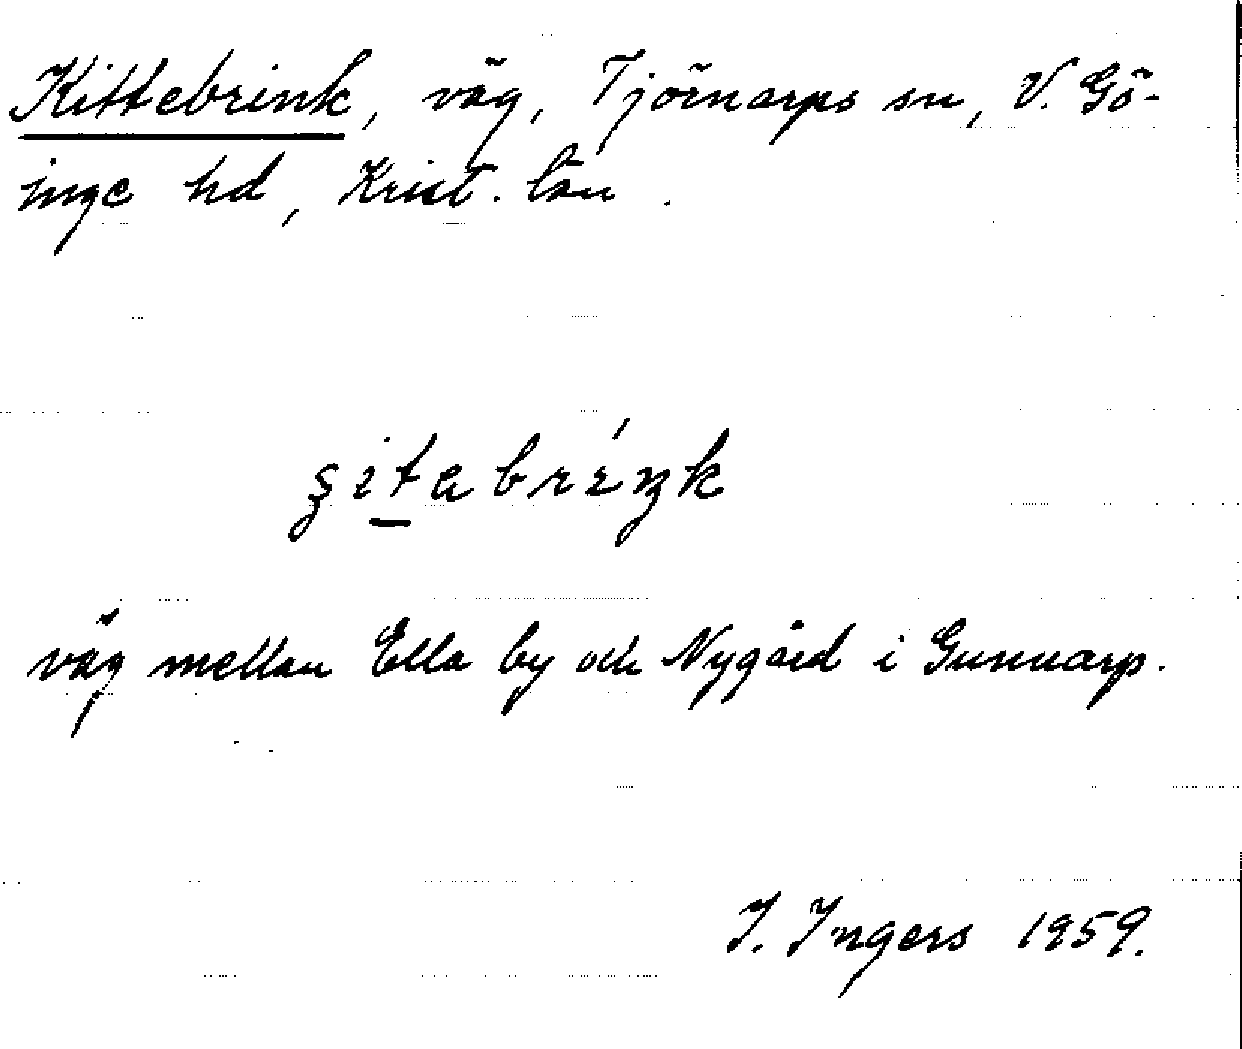 Kittebrink, väg, Tjörnarps sn, V. Gö-
inge hd, Krist. län.
ʂitabríŋk
väg mellan Ella by och Nygård i Gunnarp.
I. Ingers 1959.